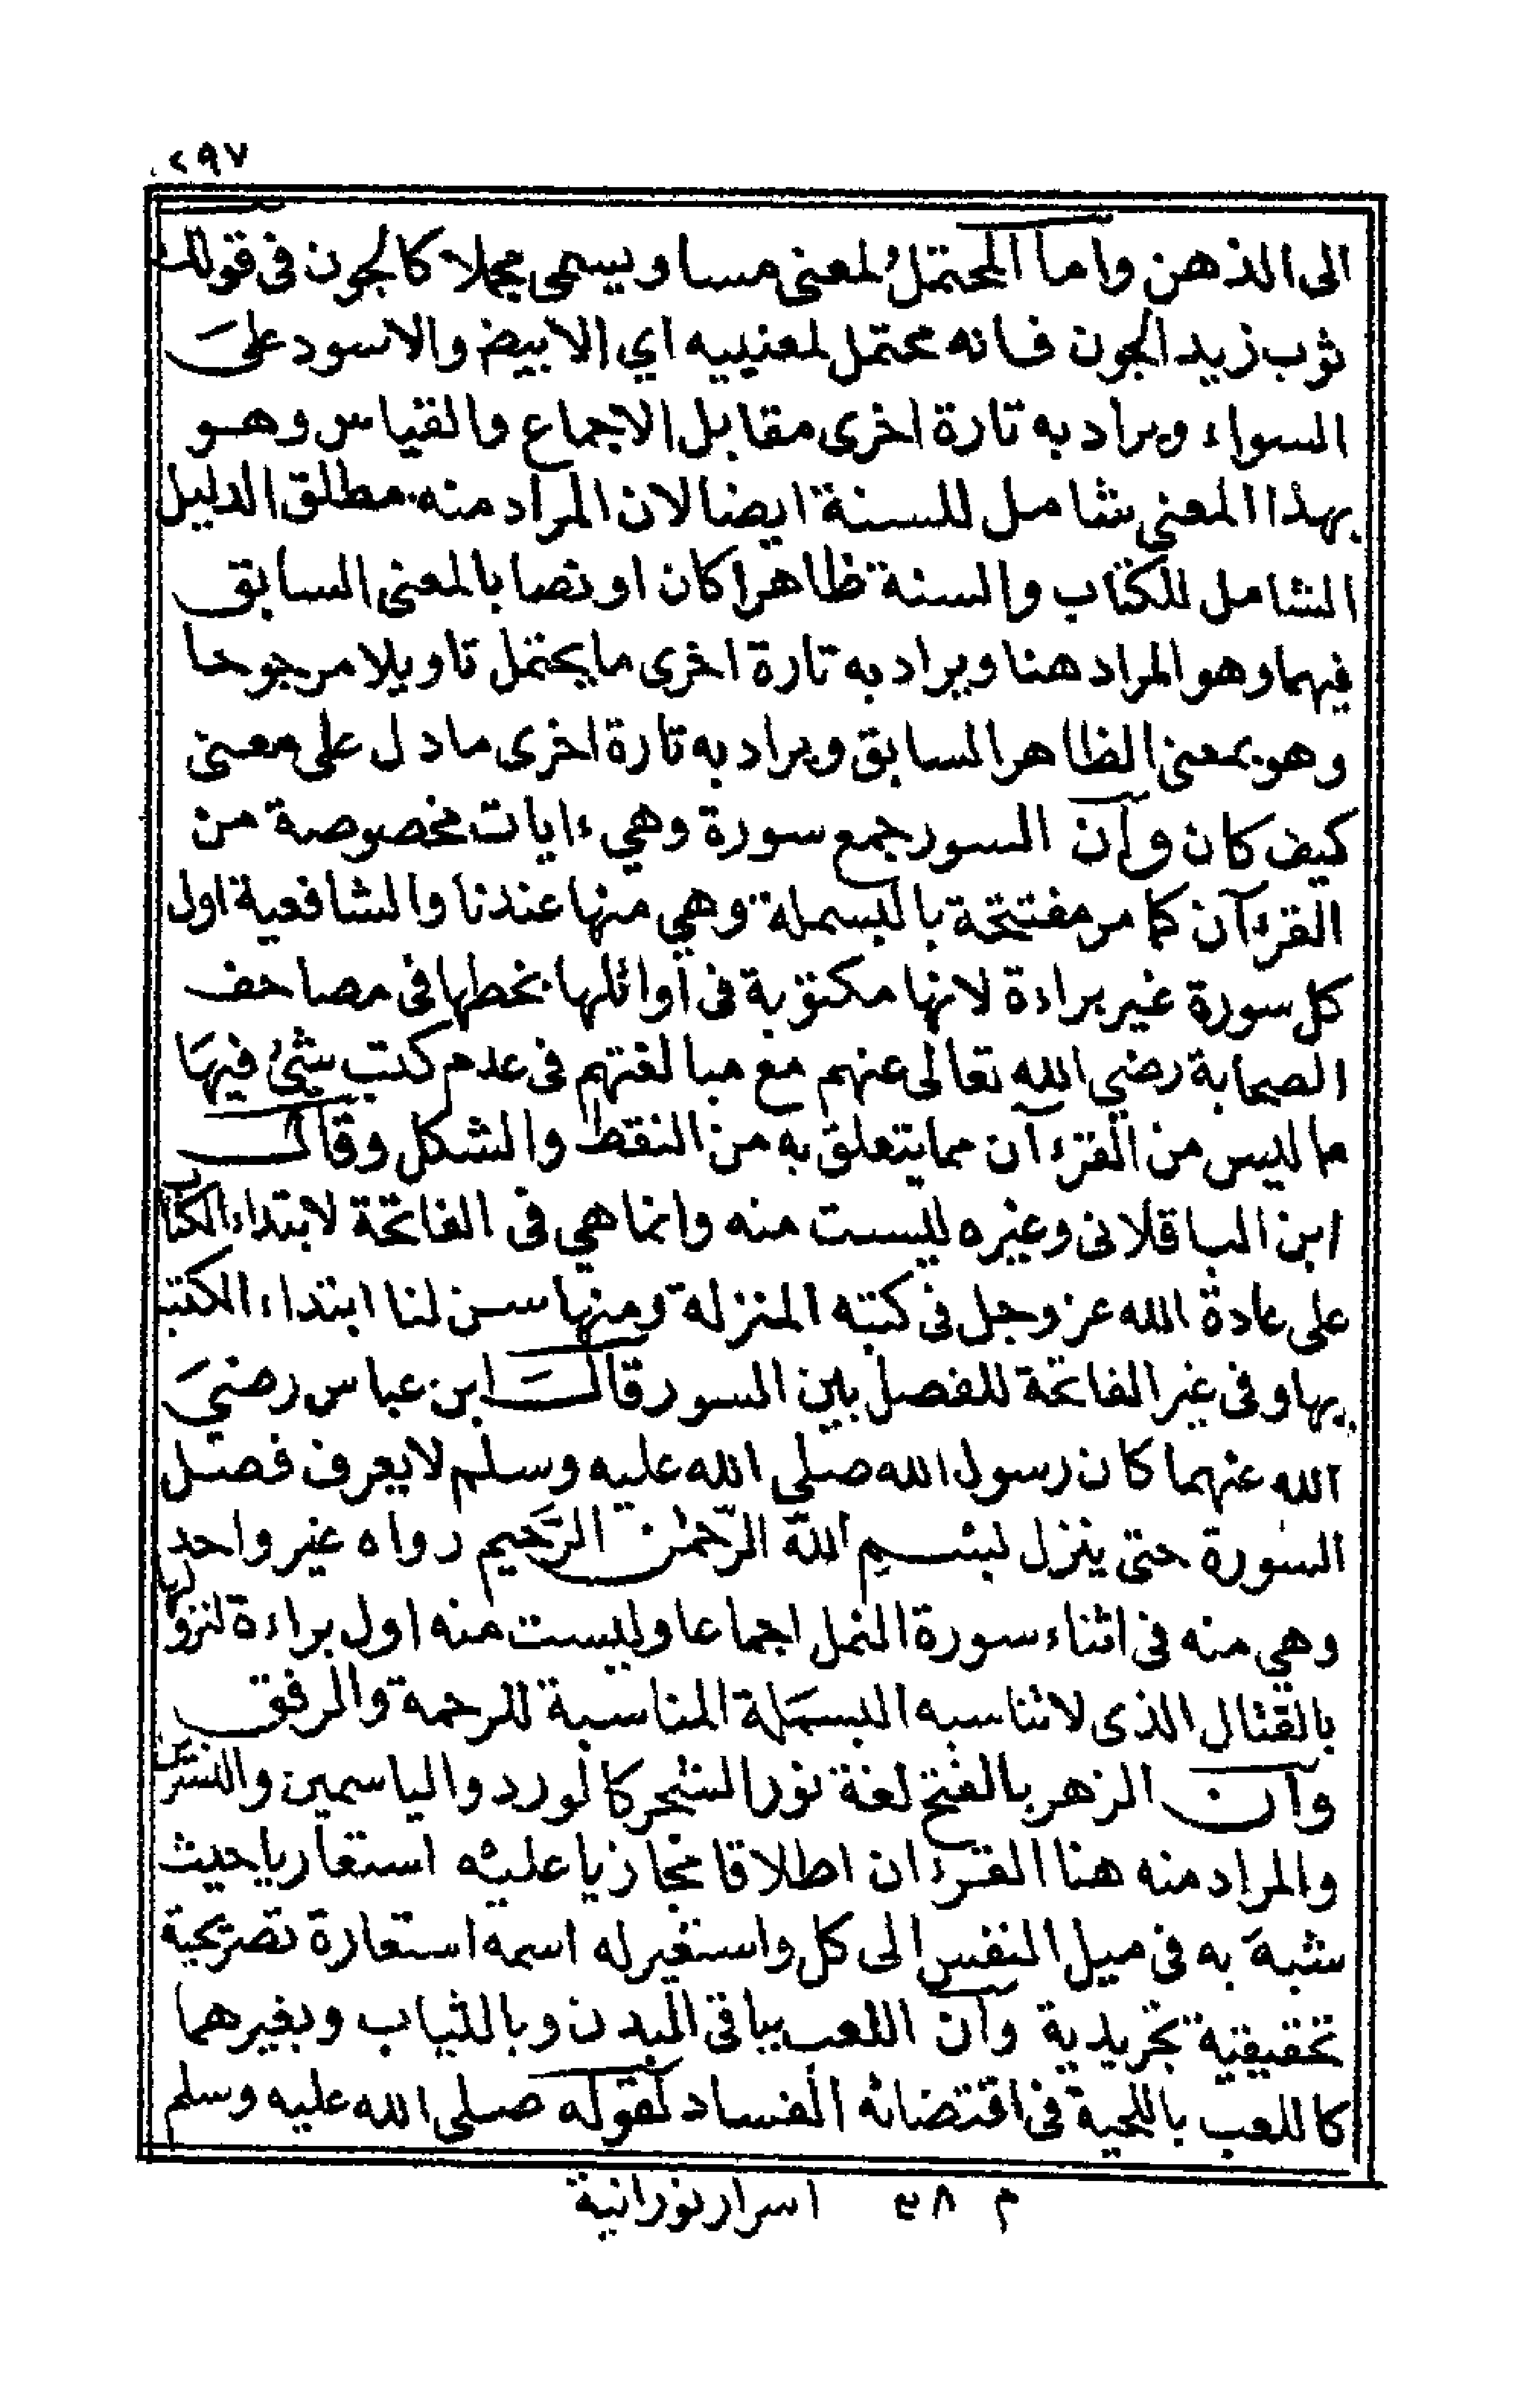 ٢٩٧
الى الذهن واما المحتملُ لمعنى مساو ويسمى مجملا كالجون فى قولك
ثوب زيد الجون فانه محتمل لمعنييه اي الابيض والاسود علىَ
السواء ويراد به تارة اخرى مقابل الاجماع والقياس وهو
بهذا المعنى شامل للسنة ايضا لان المراد منه مطلق الدليل
الشامل للكتاب والسنة ظاهرا كان او نصا بالمعنى السابق
فيهما وهو المراد هنا ويراد به تارة اخرى ما يحتمل تاويلا مرجوحا
وهو بمعنى الظاهر السابق ويراد به تارة اخرى ما دل على معنى
كيف كان وأن السور جمع سورة وهي ءايات مخصوصة من
القرءآن كما مر مفتتحة بالبسملة وهي منها عندنا والشافعية اول
كل سورة غير براءة لانها مكتوبة فى اوائلها بخطها فى مصاحف
الصحابة رضي الله تعالى عنهم مع مبالغتهم فى عدم كتب شئ فيهَا
ما ليس من القرءآن مما يتعلق به من النقط والشكل وقال
ابن الباقلانى وغيره ليست منه وانما هي فى الفاتحة لابتداء الكتاب
على عادة الله عز وجل فى كتبه المنزلة ومنها سن لنا ابتداء الكتب
بها وفى غير الفاتحة للفصل بين السور قالَ ابن عباس رضيَ
الله عنهما كان رسول الله صلى الله عليه وسلم لا يعرف فصل
السورة حتى ينزل بسْمِ اللهِ الرَّحمٰن الرَّحيم رواه غير واحد
وهي منه فى اثناء سورة النمل اجماعا وليست منه اول براءة لنزولها
بالقتال الذى لا تناسبه البسمَلة المناسبة للرحمة والرفق
وأن الزهر بالفتح لغة نور الشجر كالورد والياسمين والنسرين
والمراد منه هنا القرءان اطلاقا مجازيا عليْه استعاريا حيث
شبهَ به فى ميل النفس الى كل واستعير له اسمه استعارة تصريحية
تحقيقية تجريدية وأن اللعب بباقى البدن وبالثياب وبغيرهما
كاللعب باللحية فى اقتضائه الفساد لقوله صلى الله عليه وسلم
م ٣٨ اسرار نورانية